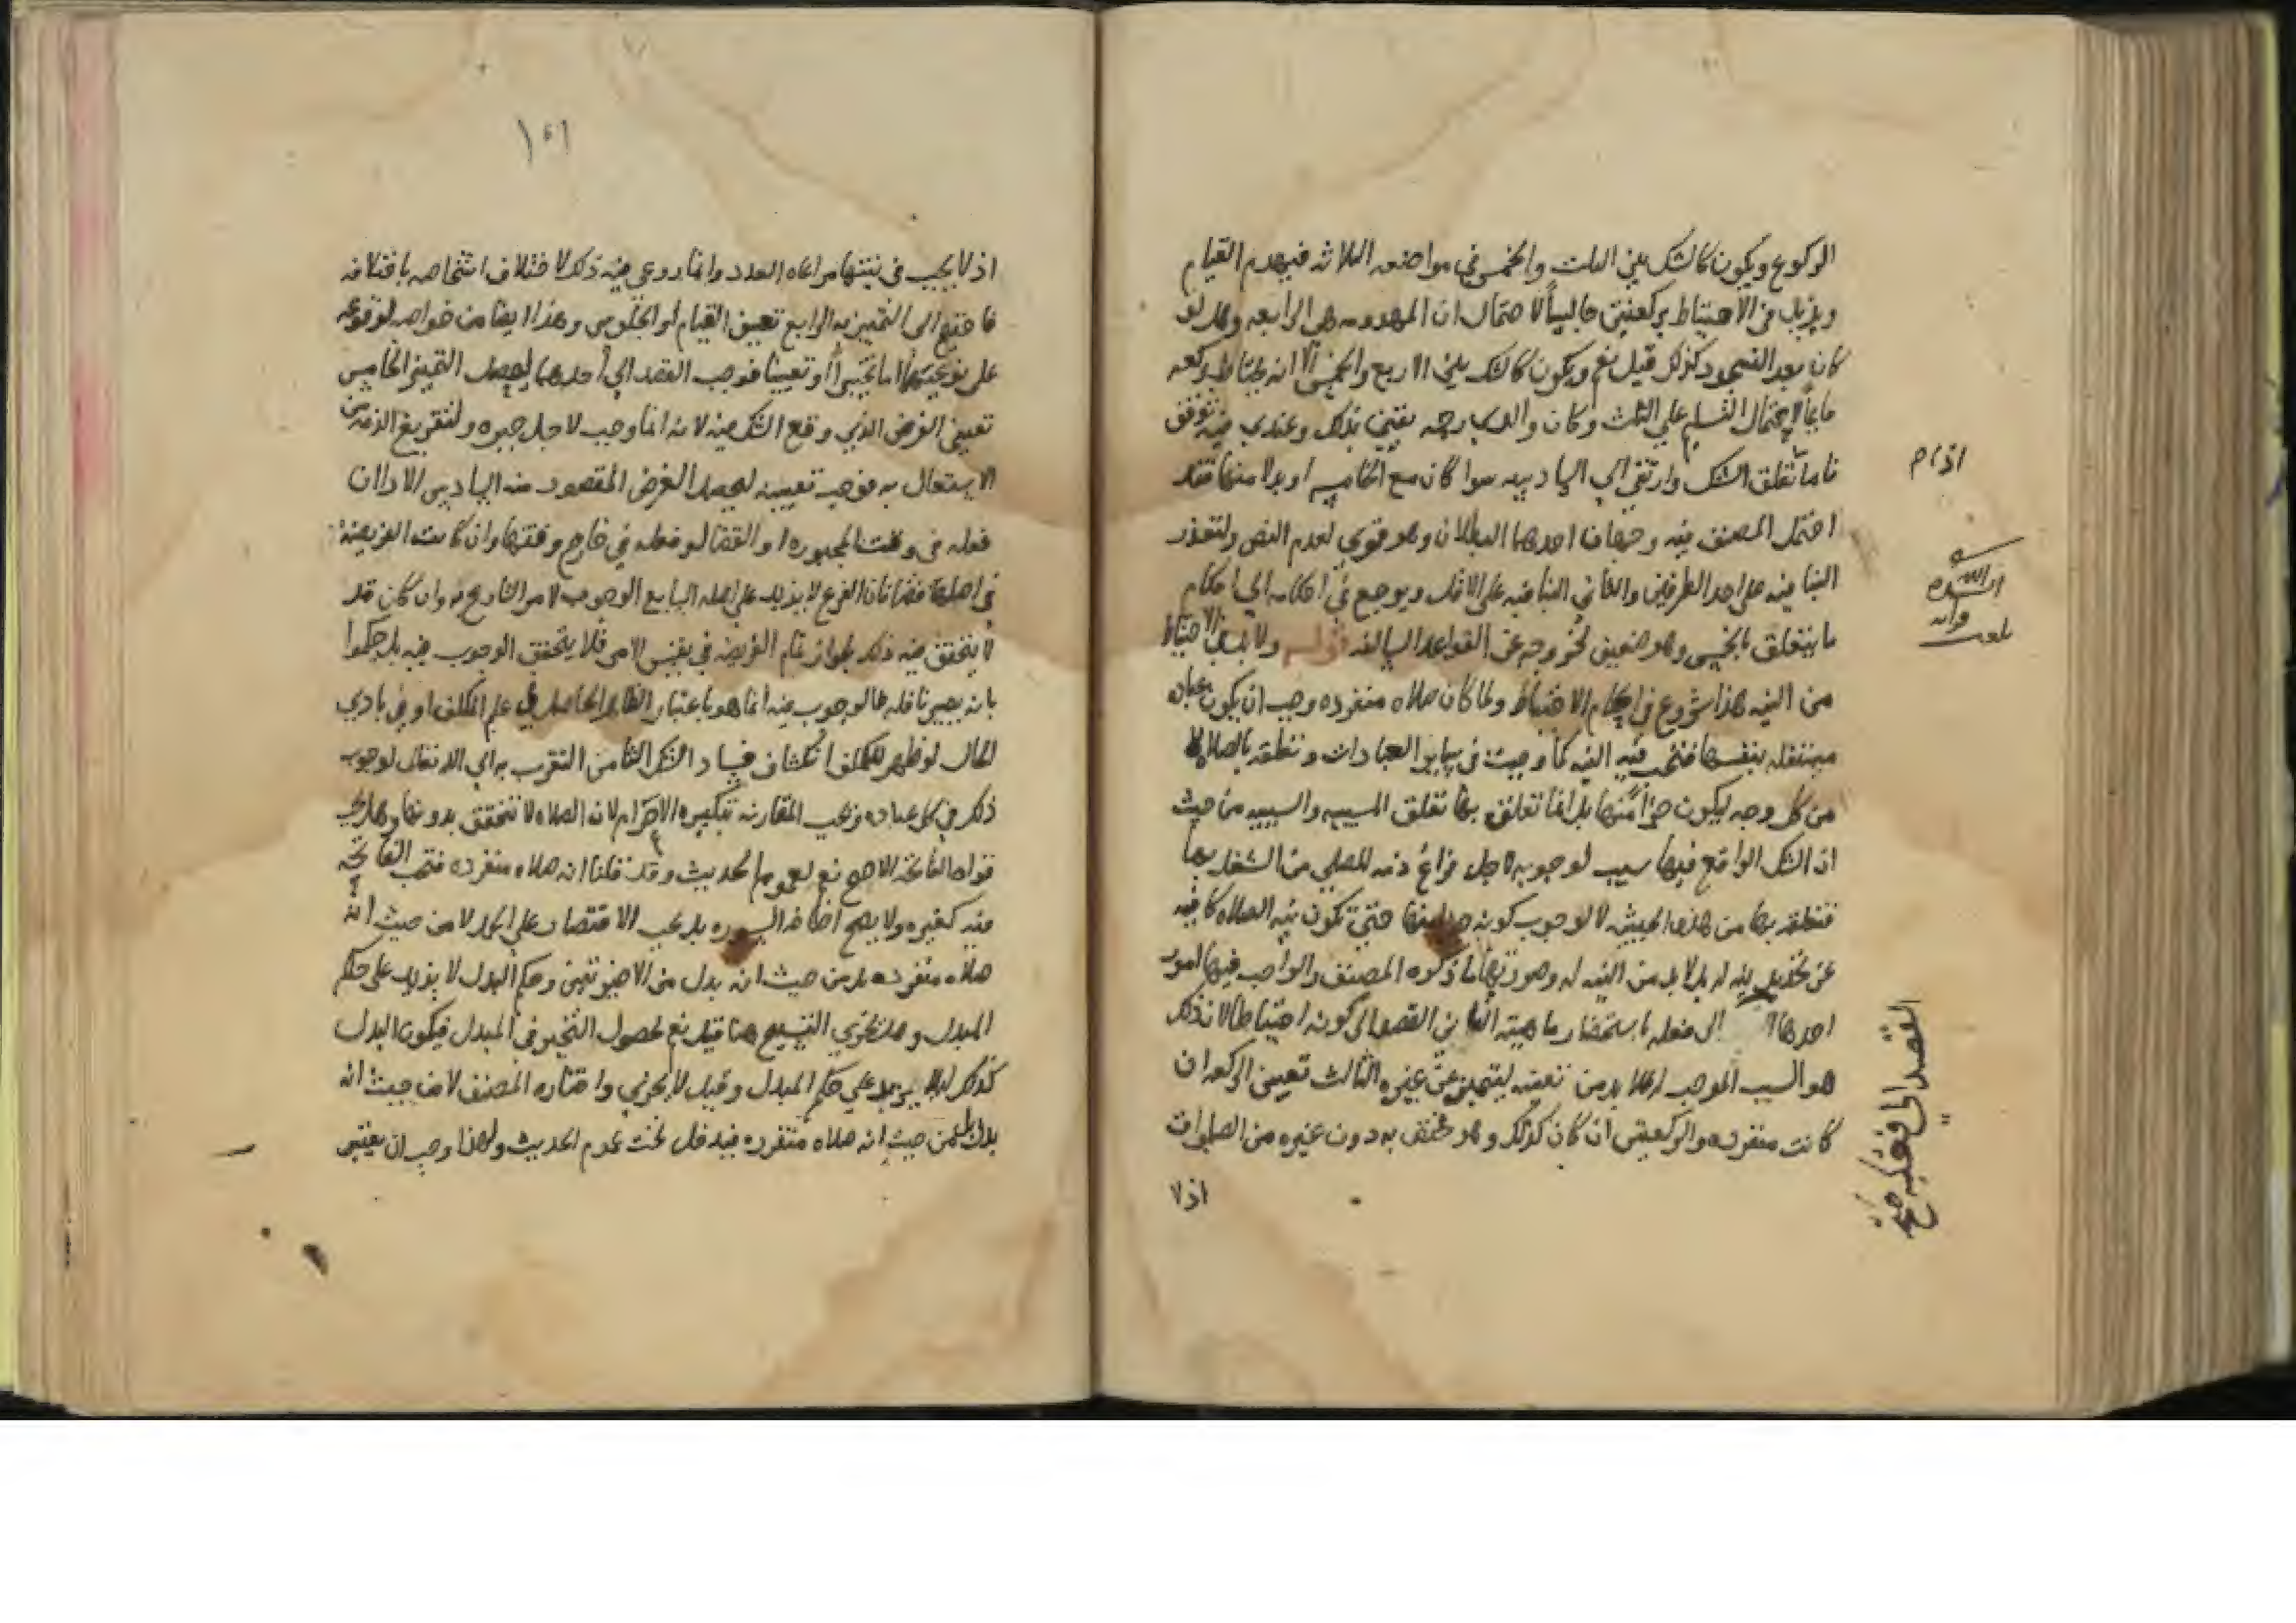 الركوع ويكون كالشك بين الثلث والخمس في مواضعه الثلاثه فيهدم القيام
ويزيل في الاحتياط بركعتين جالسا لاحتمال ان المهدومه هي الرابعه وهل لو
كان بعد السجود كذلك قيل نعم ويكون كالشك بين الاربع والخمس الا انه يحتاط بركعه
قايما لاحتمال التسليم على الثلث وكان والدي رحمه يفتي بذلك وعندي فيه توقف
فاما تعلق الشك وارتقي الي السادسه سوا كان مع الخامسه او بدلا منها فقد
احتمل المصنف فيه وجهان احدهما البطلان وهو قوي لعدم النص ولتعذر
البنا فيه على احد الطرفين والثاني البنا فيه على الاقل ويرجع في احكامه الي احكام
ما يتعلق بالخمس وهو ضعيف لخروجه عن القواعد السالفه قوله ولا بد في الاحتياط
من النيه هذا شروع في احكام الاحتياط ولما كان صلاه منفرده وجب ان يكون عباده
مستقله بنفسها فتجب فيه النيه كما وجبت في ساير العبادات وتعلقه بالصلاه لا
من كل وجه ليكون جزأ منها بل انما تعلقه بها تعلق المسببيه والسببيه من حيث
ان الشك الواقع فيها سبب لوجوبه لاجل فراغ ذمه المصلي من الشغل بها
فتعلقه بها من هذه الحيثيه لا لوجوب كونه جزا منها حتي تكون نيه الصلاه كافيه
عن تجديد نيه له بل لا بد من النيه له وصورتها ما ذكره المصنف والواجب فيها امور
احدها الى فعله باستحضار ماهيته الثاني القصد الى كونه احتياطا لان ذلك
هو السبب الموجب له فلا بد من تعينه ليتميز عن غيره الثالث تعيين الركعه ان
كانت منفرده والركعتين ان كان كذلك وهو مختص به دون غيره من الصلوات
اذ لا
القصد الى فعله صح
١٥١
اذ لا يجب في نيتها مراعاه العدد وانما روعي فيه ذلك لاختلاف اشخاصه باختلافه
فاحتيج الى التمييز به الرابع تعيين القيام او الجلوس وهذا ايضا من خواصه لوقوعه
على نوعيتها اما تخييرا او تعيينا فوجب القصد الي احدهما ليحصل التمييز الخامس
تعيين الفرض الذي وقع الشك فيه لانه انما وجب لاجل جبره ولتفريغ الذمه من
الاشتغال به فوجب تعيينه ليحصل الغرض المقصود منه السادس الادا ان
فعله في وقت المجبوره او القضا لو فعله في خارج وقتها وان كانت الفريضه
في اصلها قضا فان الفرع لا يزيد على اصله السابع الوجوب لامر الشارع به وان كان قد
لا يتحقق فيه ذلك لجواز تمام الفريضه في نفس الامر فلا يتحقق الوجوب فيه بل حكموا
بانه يصير نافله فالوجوب فيه انما هو باعتبار الظاهر الحاصل في علم المكلف او في بادي
الحال لو ظهر للمكلف انكشاف فساد الشك الثامن التقرب به الي الله تعالى لوجوب
ذلك في كل عباده وتجب المقارنه بتكبيره الاحرام لان الصلاه لا تتحقق بدونها وهل يجب
قراه الفاتحه الاصح نعم لعموم الحديث وقد قلنا انه صلاه منفرده فتجب الفاتحه
فيه كغيره ولا يصح اضافه السوره بل يجب الاقتصار على الحمد لا من حيث انه
صلاه منفرده بل من حيث انه بدل من الاخيرتين وحكم البدل لا يزيد على حكم
المبدل وهل يجزي التسبيح هنا قيل نعم لحصول التخيير في المبدل فيكون البدل
كذلك لئلا يزيد علي حكم المبدل وقيل لا يجزي واختاره المصنف لا من حيث انه
بدل بل من حيث انه صلاه منفرده فيدخل تحت عموم الحديث ولهذا وجب ان يعتبر